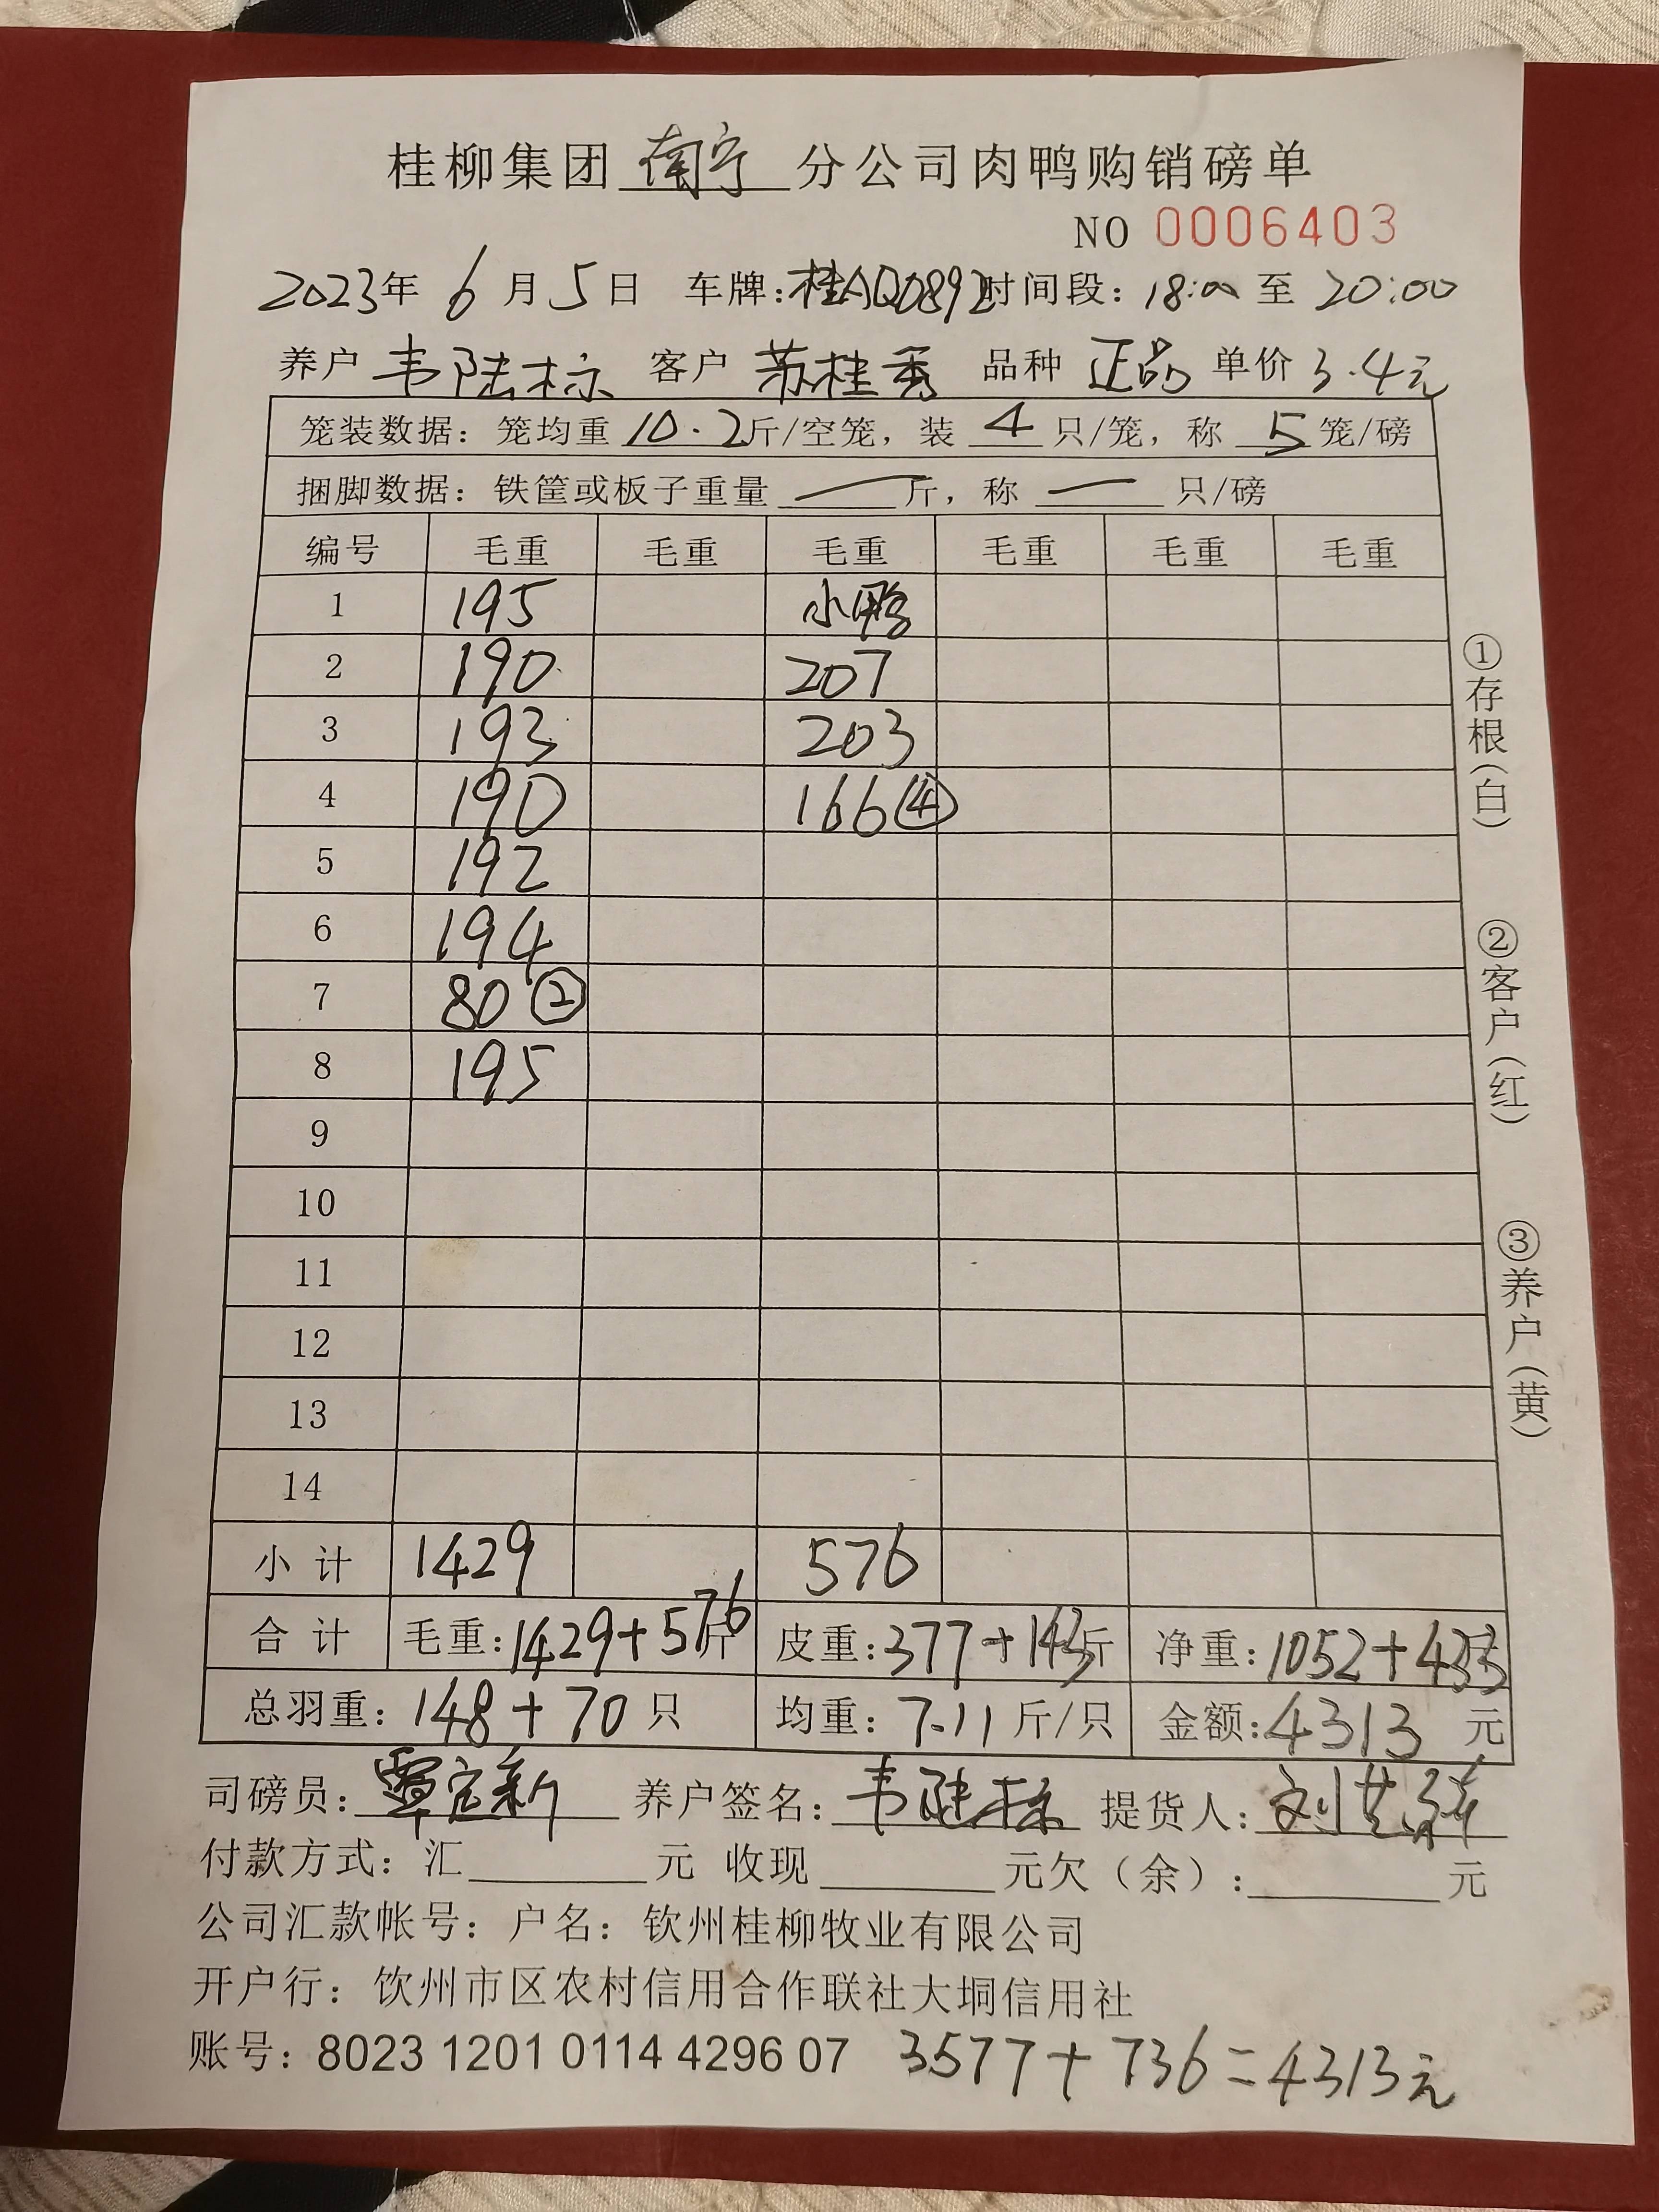 桂柳集团 南宁 分公司肉鸭购销磅单
NO 0006403
2023年 6 月 5 日 车牌:桂AQ0892 时间段: 18:00 至 20:00
养户 韦陆标 客户 苏桂秀 品种 正品 单价 3.4元
笼装数据: 笼均重 10.2斤/空笼, 装 4 只/笼, 称 5 笼/磅
捆脚数据: 铁筐或板子重量 — 斤, 称 — 只/磅
编号 毛重 毛重 毛重 毛重 毛重 毛重
1 195 小鸭
2 190 207
3 193 203
4 190 166④
5 192
6 194
7 80②
8 195
9
10
11
12
13
14
小计 1429 576
合计 毛重:1429+576斤 皮重:377+143斤 净重:1052+433
总羽重: 148+70 只 均重: 7.11 斤/只 金额:4313 元
司磅员: 覃宝新 养户签名: 韦陆标 提货人: 刘
付款方式: 汇 元 收现 元欠(余): 元
公司汇款帐号: 户名: 钦州桂柳牧业有限公司
开户行: 饮州市区农村信用合作联社大垌信用社
账号: 8023 1201 0114 4296 07 3577+736=4313元
①存根(白)
②客户(红)
③养户(黄)